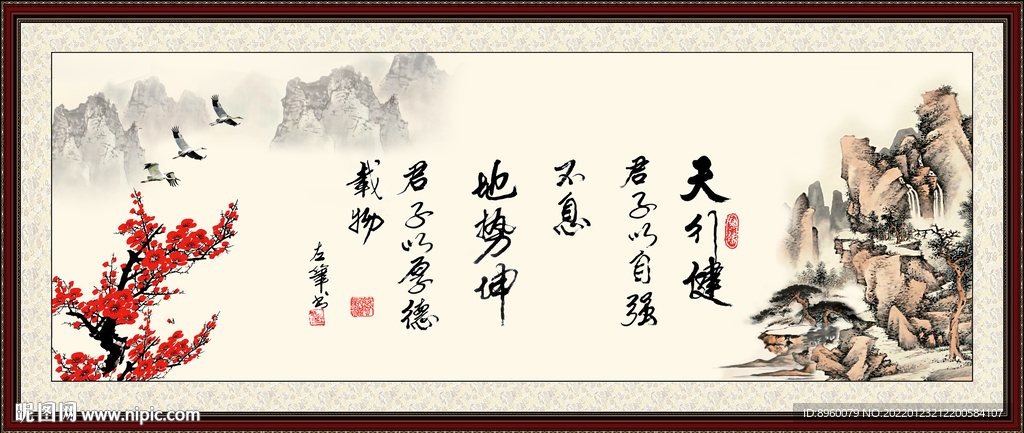 天行健
君子以自强
不息
地势坤
君子以厚德
载物
左笔书
昵图网 www.nipic.com
ID:8960079 NO:20220123212200584107